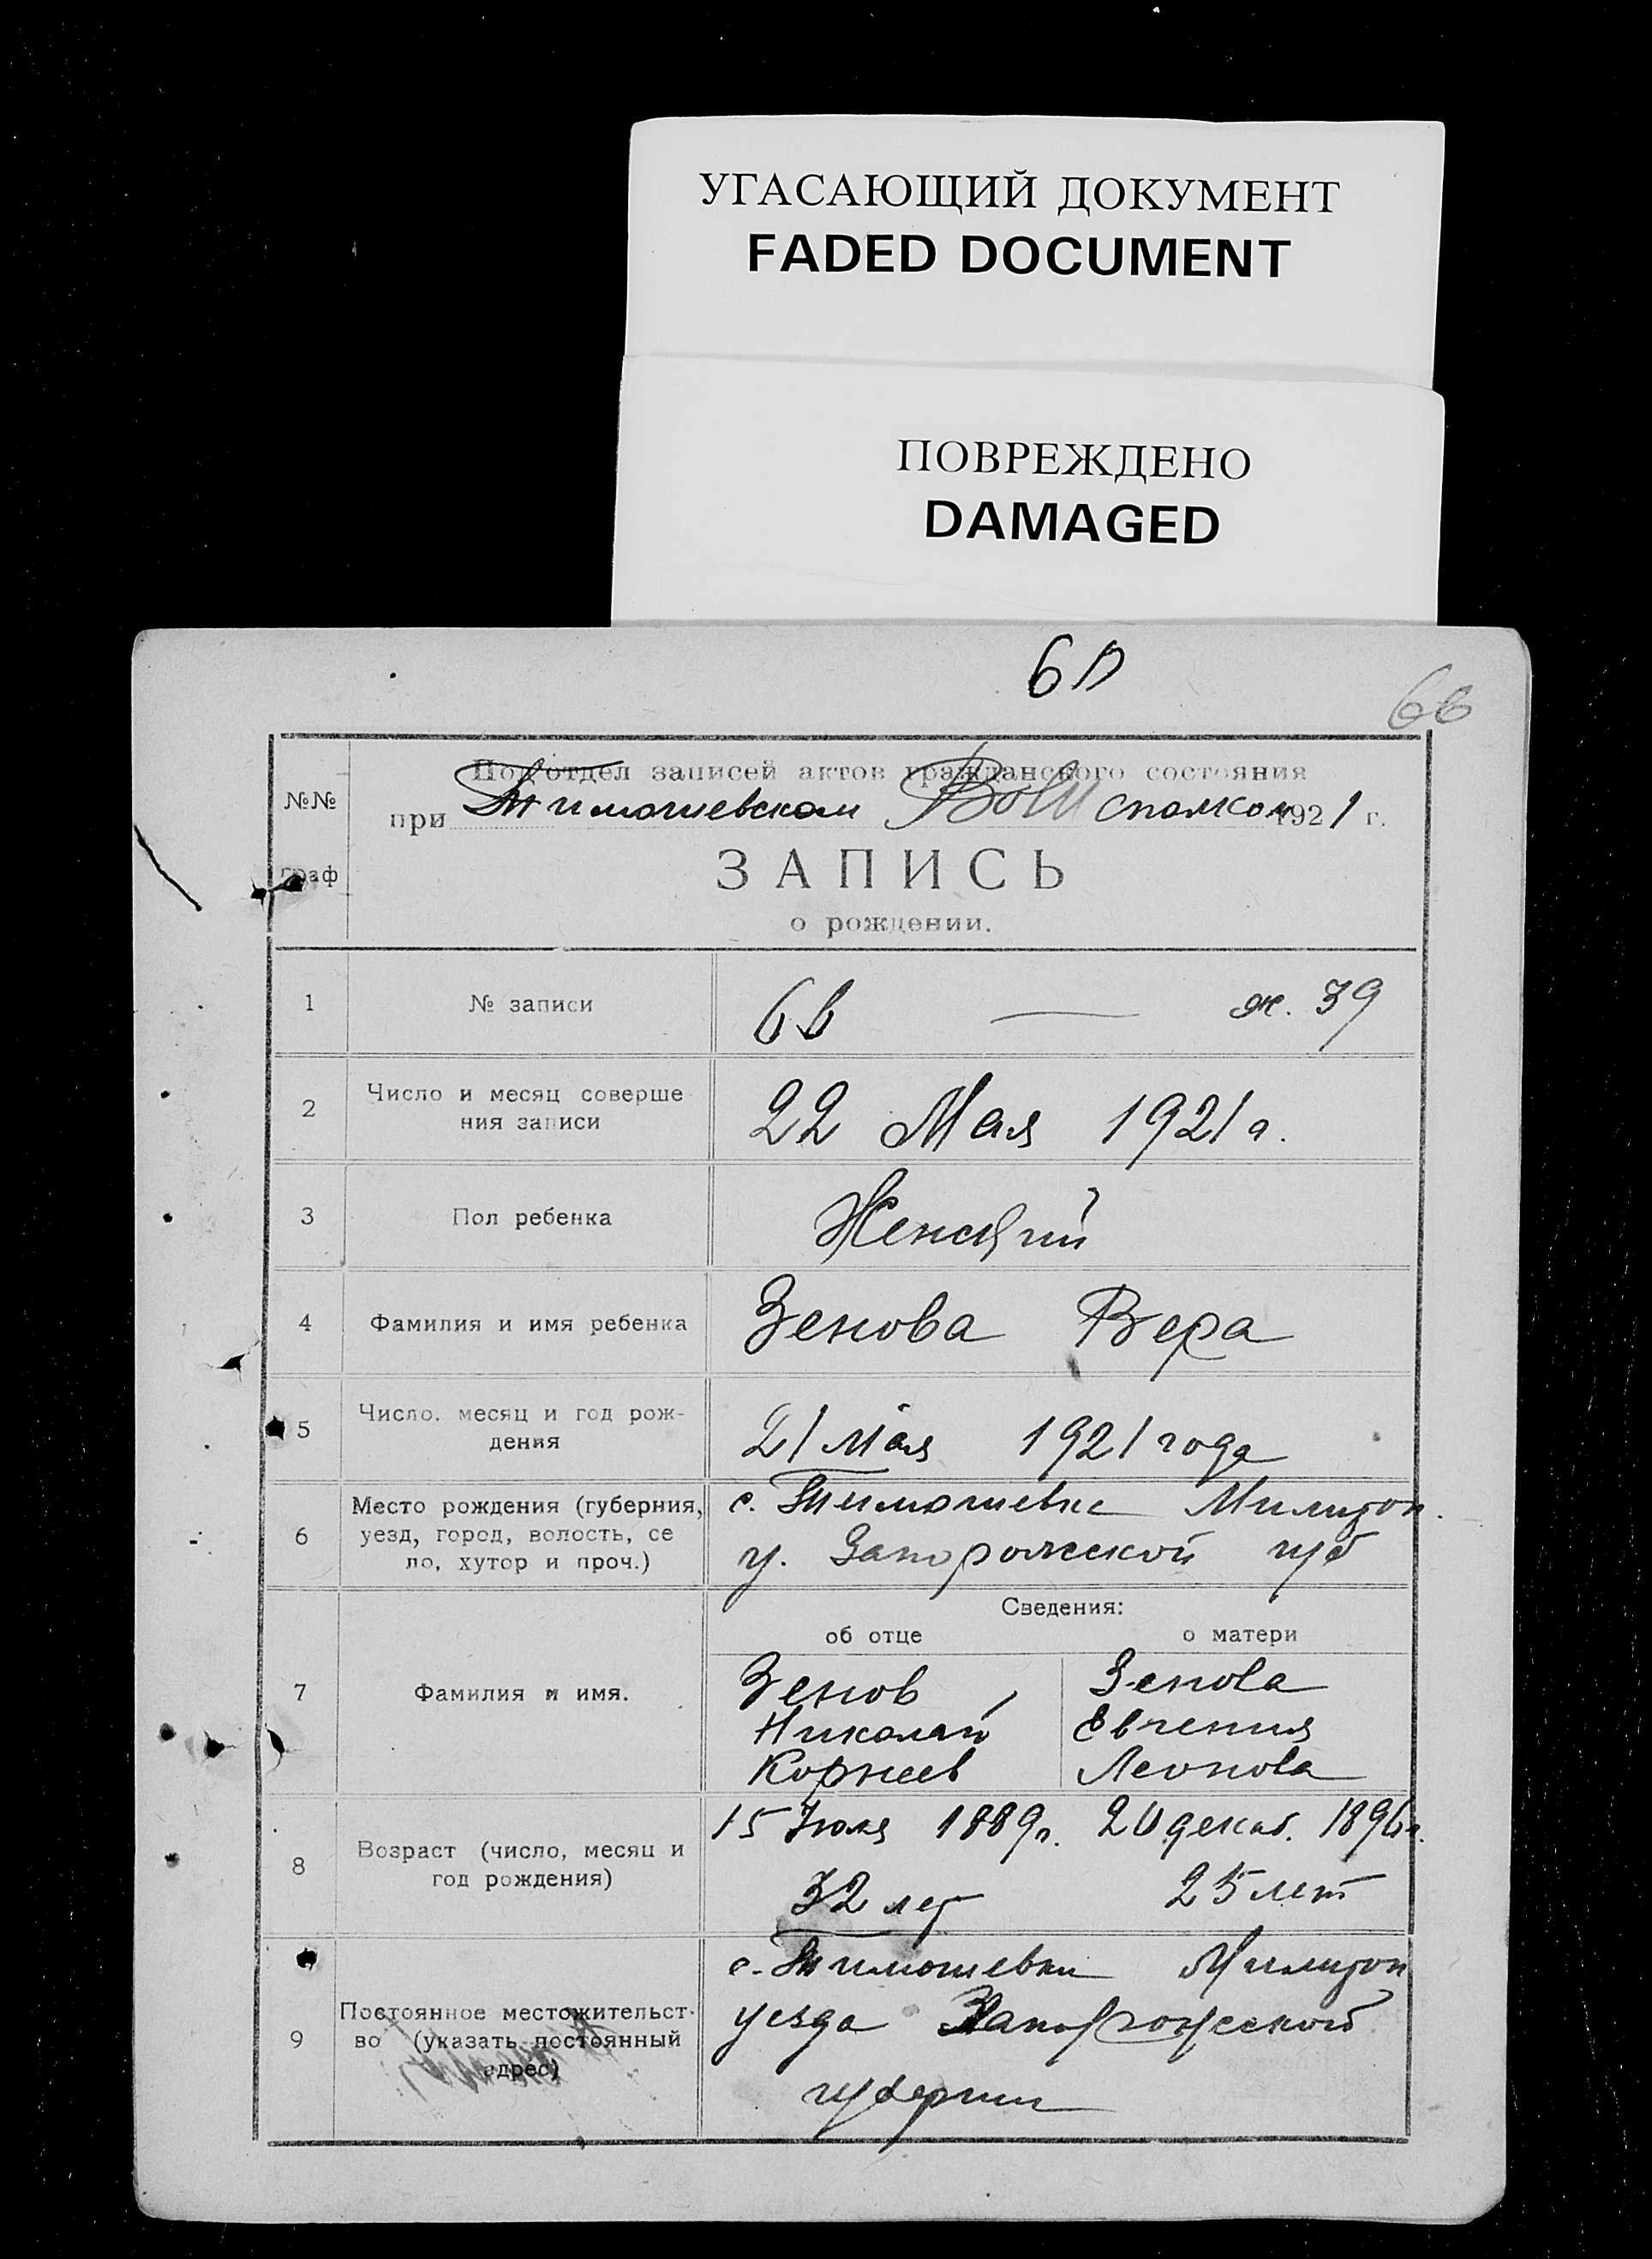 УГАСАЮЩИЙ ДОКУМЕНТ
FADED DOCUMENT
ПОВРЕЖДЕНО
DAMAGED
66
№№
граф
Подотдел записей актов гражданского состояния
при Тимошевском Волисполком 1921 г.
ЗАПИСЬ
о рождении.
1 № записи 66 — ж. 39
2 Число и месяц соверше
ния записи 22 Мая 1921 г.
3 Пол ребенка Женский
4 Фамилия и имя ребенка Зенова Вера
5 Число. месяц и год рож-
дения 21 Мая 1921 года
6 Место рождения (губерния,
уезд, город, волость, се
ло, хутор и проч.)
с. Тимошевке Милитоп.
у. Запорожской губ
Сведения:
об отце о матери
7 Фамилия и имя.
Зенов Зенова
Николай Евгения
Корнеев Леонова
8 Возраст (число, месяц и
год рождения)
15 Июля 1889г. декаб. 1896г.
32 лет 25 лет
9 Постоянное местожительст-
во (указать постоянный
адрес)
с. Тимошевки Милитоп
уезда Запорожской
губернии